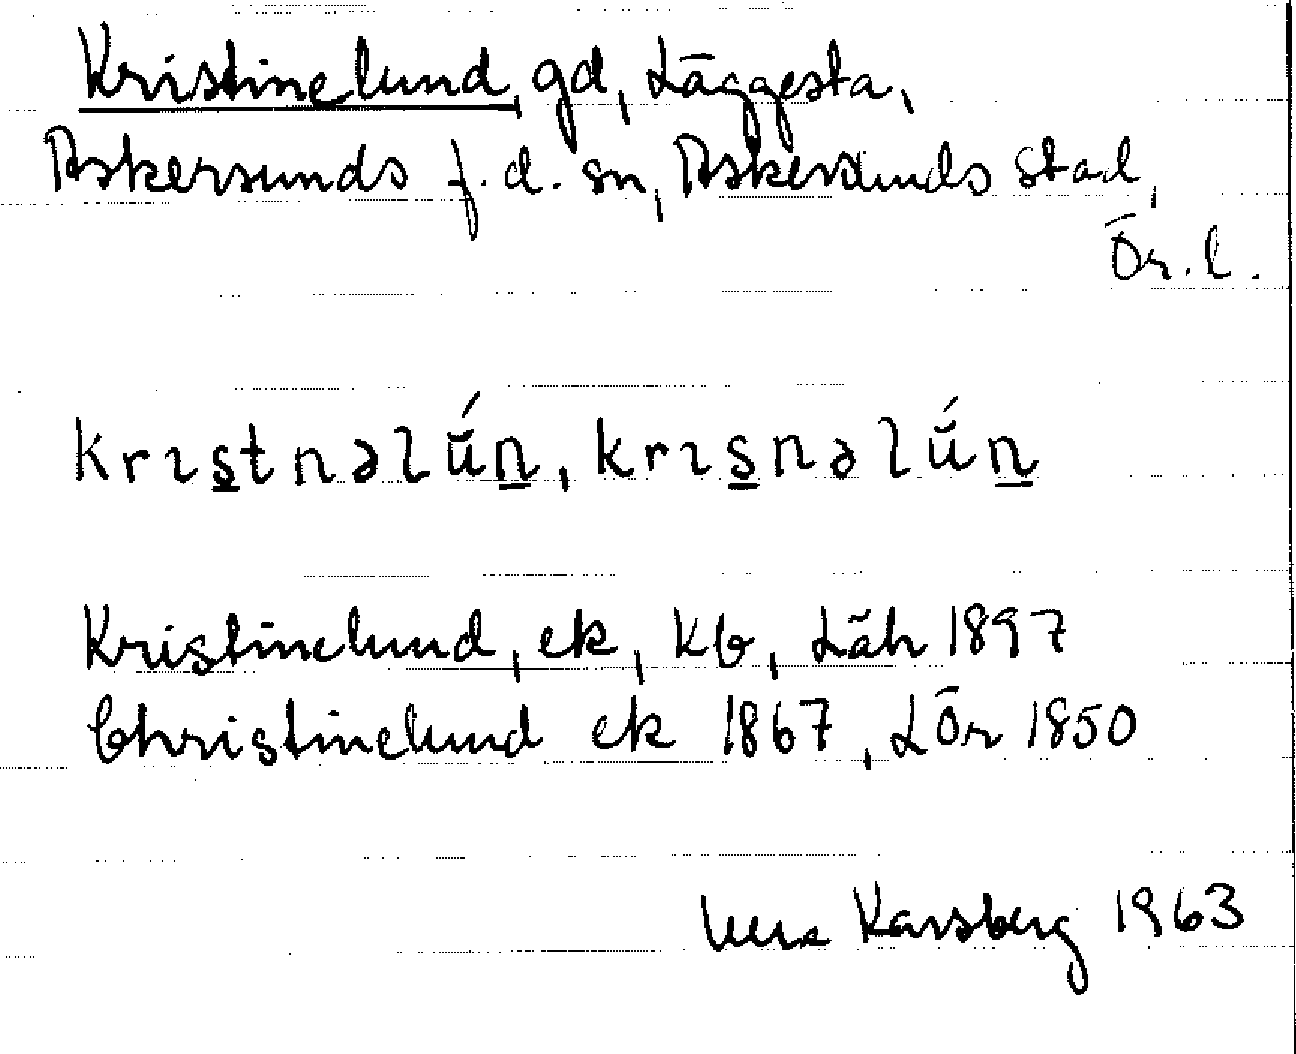 Kristinelund, gd, Läggesta,
Askersunds f.d. sn, Askersunds stad,
Ör. l.
krıs̲tnəlŭ́n̲, krıs̲nəlŭ́n̲
Kristinelund, ek, kb, Läh 1897
Christinelund ek 1867, LÖr 1850
Vera Karsberg 1963